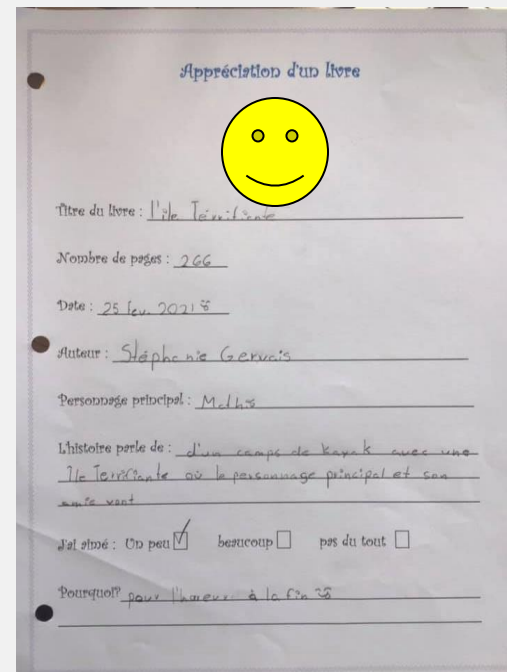 Appréciation d'un livre
Titre du livre : l'île Térrifiante
Nombre de pages : 266
Date : 25 fev. 2021
Auteur : Stéphanie Gervais
Personnage principal :
L'histoire parle de : d'un camps de kayak avec une
île Terrifiante où le personnage principal et son
amie vont
J'ai aimé : Un peu beaucoup pas du tout
Pourquoi? pour à la fin